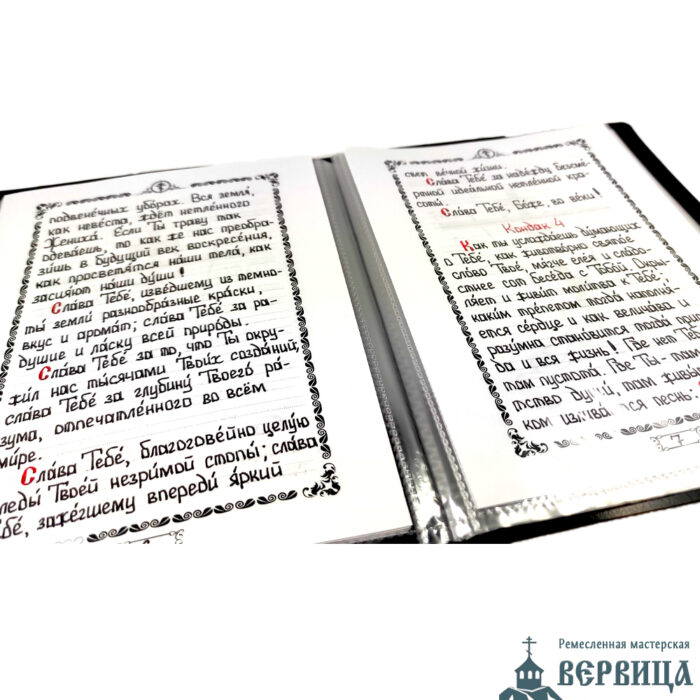 подвенечных уборах. Вся земля́,
как неве́ста, ждёт нетле́нного
Жениха́. Если Ты траву так
одева́ешь, то как же нас преобра-
зи́шь в бу́дущий век воскресе́ния,
как просветя́тся на́ши тела́, как
засия́ют на́ши ду́ши!
Сла́ва Тебе́, изве́дшему из темно-
ты́ земли́ разнообра́зные кра́ски,
вкус и арома́т; сла́ва Тебе́ за ра-
душие и ла́ску всей приро́ды.
Сла́ва Тебе́ за то, что Ты окру-
жи́л нас ты́сячами Твои́х созда́ний,
сла́ва Тебе́ за глубину́ Твоего́ ра́-
зума, отпеча́тлённого во всём
ми́ре.
Сла́ва Тебе́, благогове́йно целу́ю
следы́ Твое́й незри́мой стопы́; сла́ва
Тебе́, заже́гшему впереди́ я́ркий
свет ве́чной жи́зни.
Сла́ва Тебе́ за наде́жду бессме́-
ртной идеа́льной нетле́нной кра-
соты́.
Сла́ва Тебе́, Бо́же, во ве́ки!
Кондак 4
Как ты услажда́ешь ду́мающих
о Тебе́, как животво́рно свято́е
сло́во Твое́, мя́гче еле́я и сла́до-
стнее сот бесе́да с Тобо́й. Окры-
ля́ет и живи́т моли́тва к Тебе́;
каки́м тре́петом тогда́ наполня-
ется се́рдце и как велича́ва и
разу́мна стано́вится тогда́ приро-
да и вся жизнь! Где нет Тебя
там пустота́. Где Ты-там
тство души́, там живы
ком излива́ется песнь:
7
Ремесленная мастерская
ВЕРВИЦА